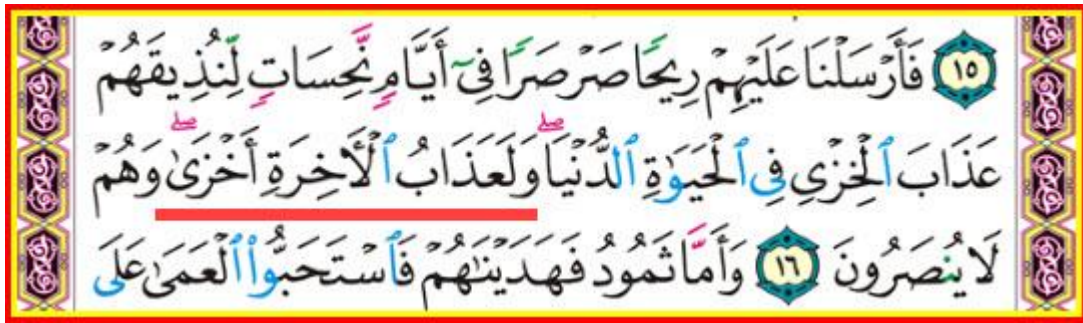 ١٥ فَأَرْسَلْنَا عَلَيْهِمْ رِيحًا صَرْصَرًا فِىٓ أَيَّامٍ نَّحِسَاتٍ لِّنُذِيقَهُمْ
عَذَابَ ٱلْخِزْىِ فِى ٱلْحَيَوٰةِ ٱلدُّنْيَا ۖ وَلَعَذَابُ ٱلْأَخِرَةِ أَخْزَىٰ ۖ وَهُمْ
لَا يُنصَرُونَ ١٦ وَأَمَّا ثَمُودُ فَهَدَيْنَٰهُمْ فَٱسْتَحَبُّوا۟ ٱلْعَمَىٰ عَلَى